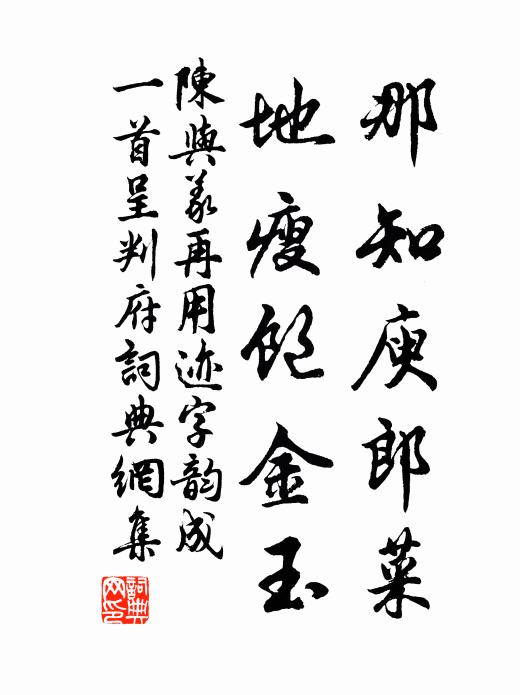 那知庾郎菜
地瘦飽金玉
陳與義再用迹字韵成
一首呈判府詞典網集
詞典网印